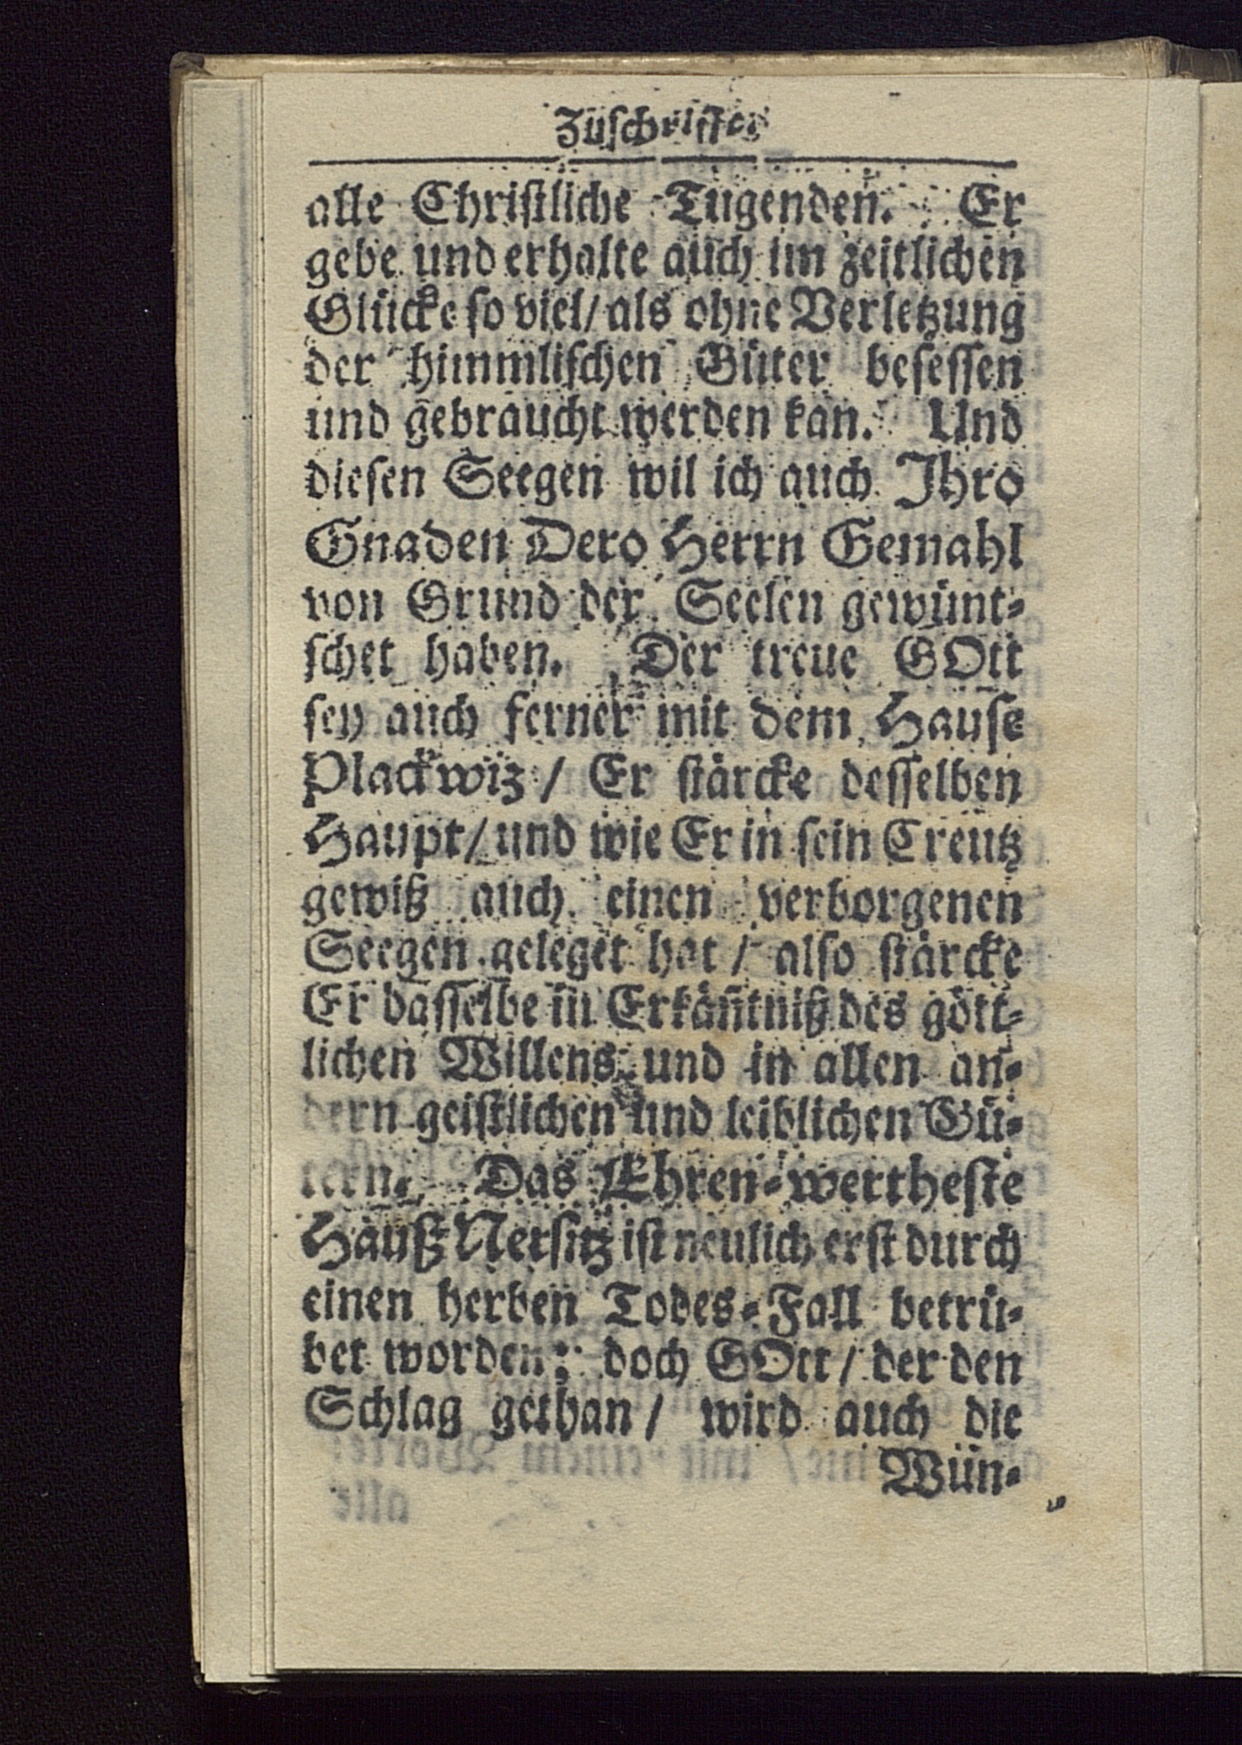 Zuschrifft
alle Christliche Tugenden. Er
gebe und erhalte auch im zeitlichen
Glücke so viel / als ohne Verletzung
der himmlischen Güter besessen
und gebraucht werden kan. Und
diesen Seegen wil ich auch Ihro
Gnaden Dero Herrn Gemahl
von Grund der Seelen gewünt-
schet haben. Der treue GOtt
sey auch ferner mit dem Hause
Plackwiz / Er stärcke desselben
Haupt / und wie Er in sein Creutz
gewiß auch einen verborgenen
Seegen geleget hat / also stärcke
Er dasselbe in Erkäñtniß des gött-
lichen Willens und in allen an-
dern geistlichen und leiblichen Gü-
tern. Das Ehren-wertheste
Hauß Nersitz ist neulich erst durch
einen herben Todes-Fall betrü-
bet worden; doch GOtt / der den
Schlag gethan / wird auch die
Wün-